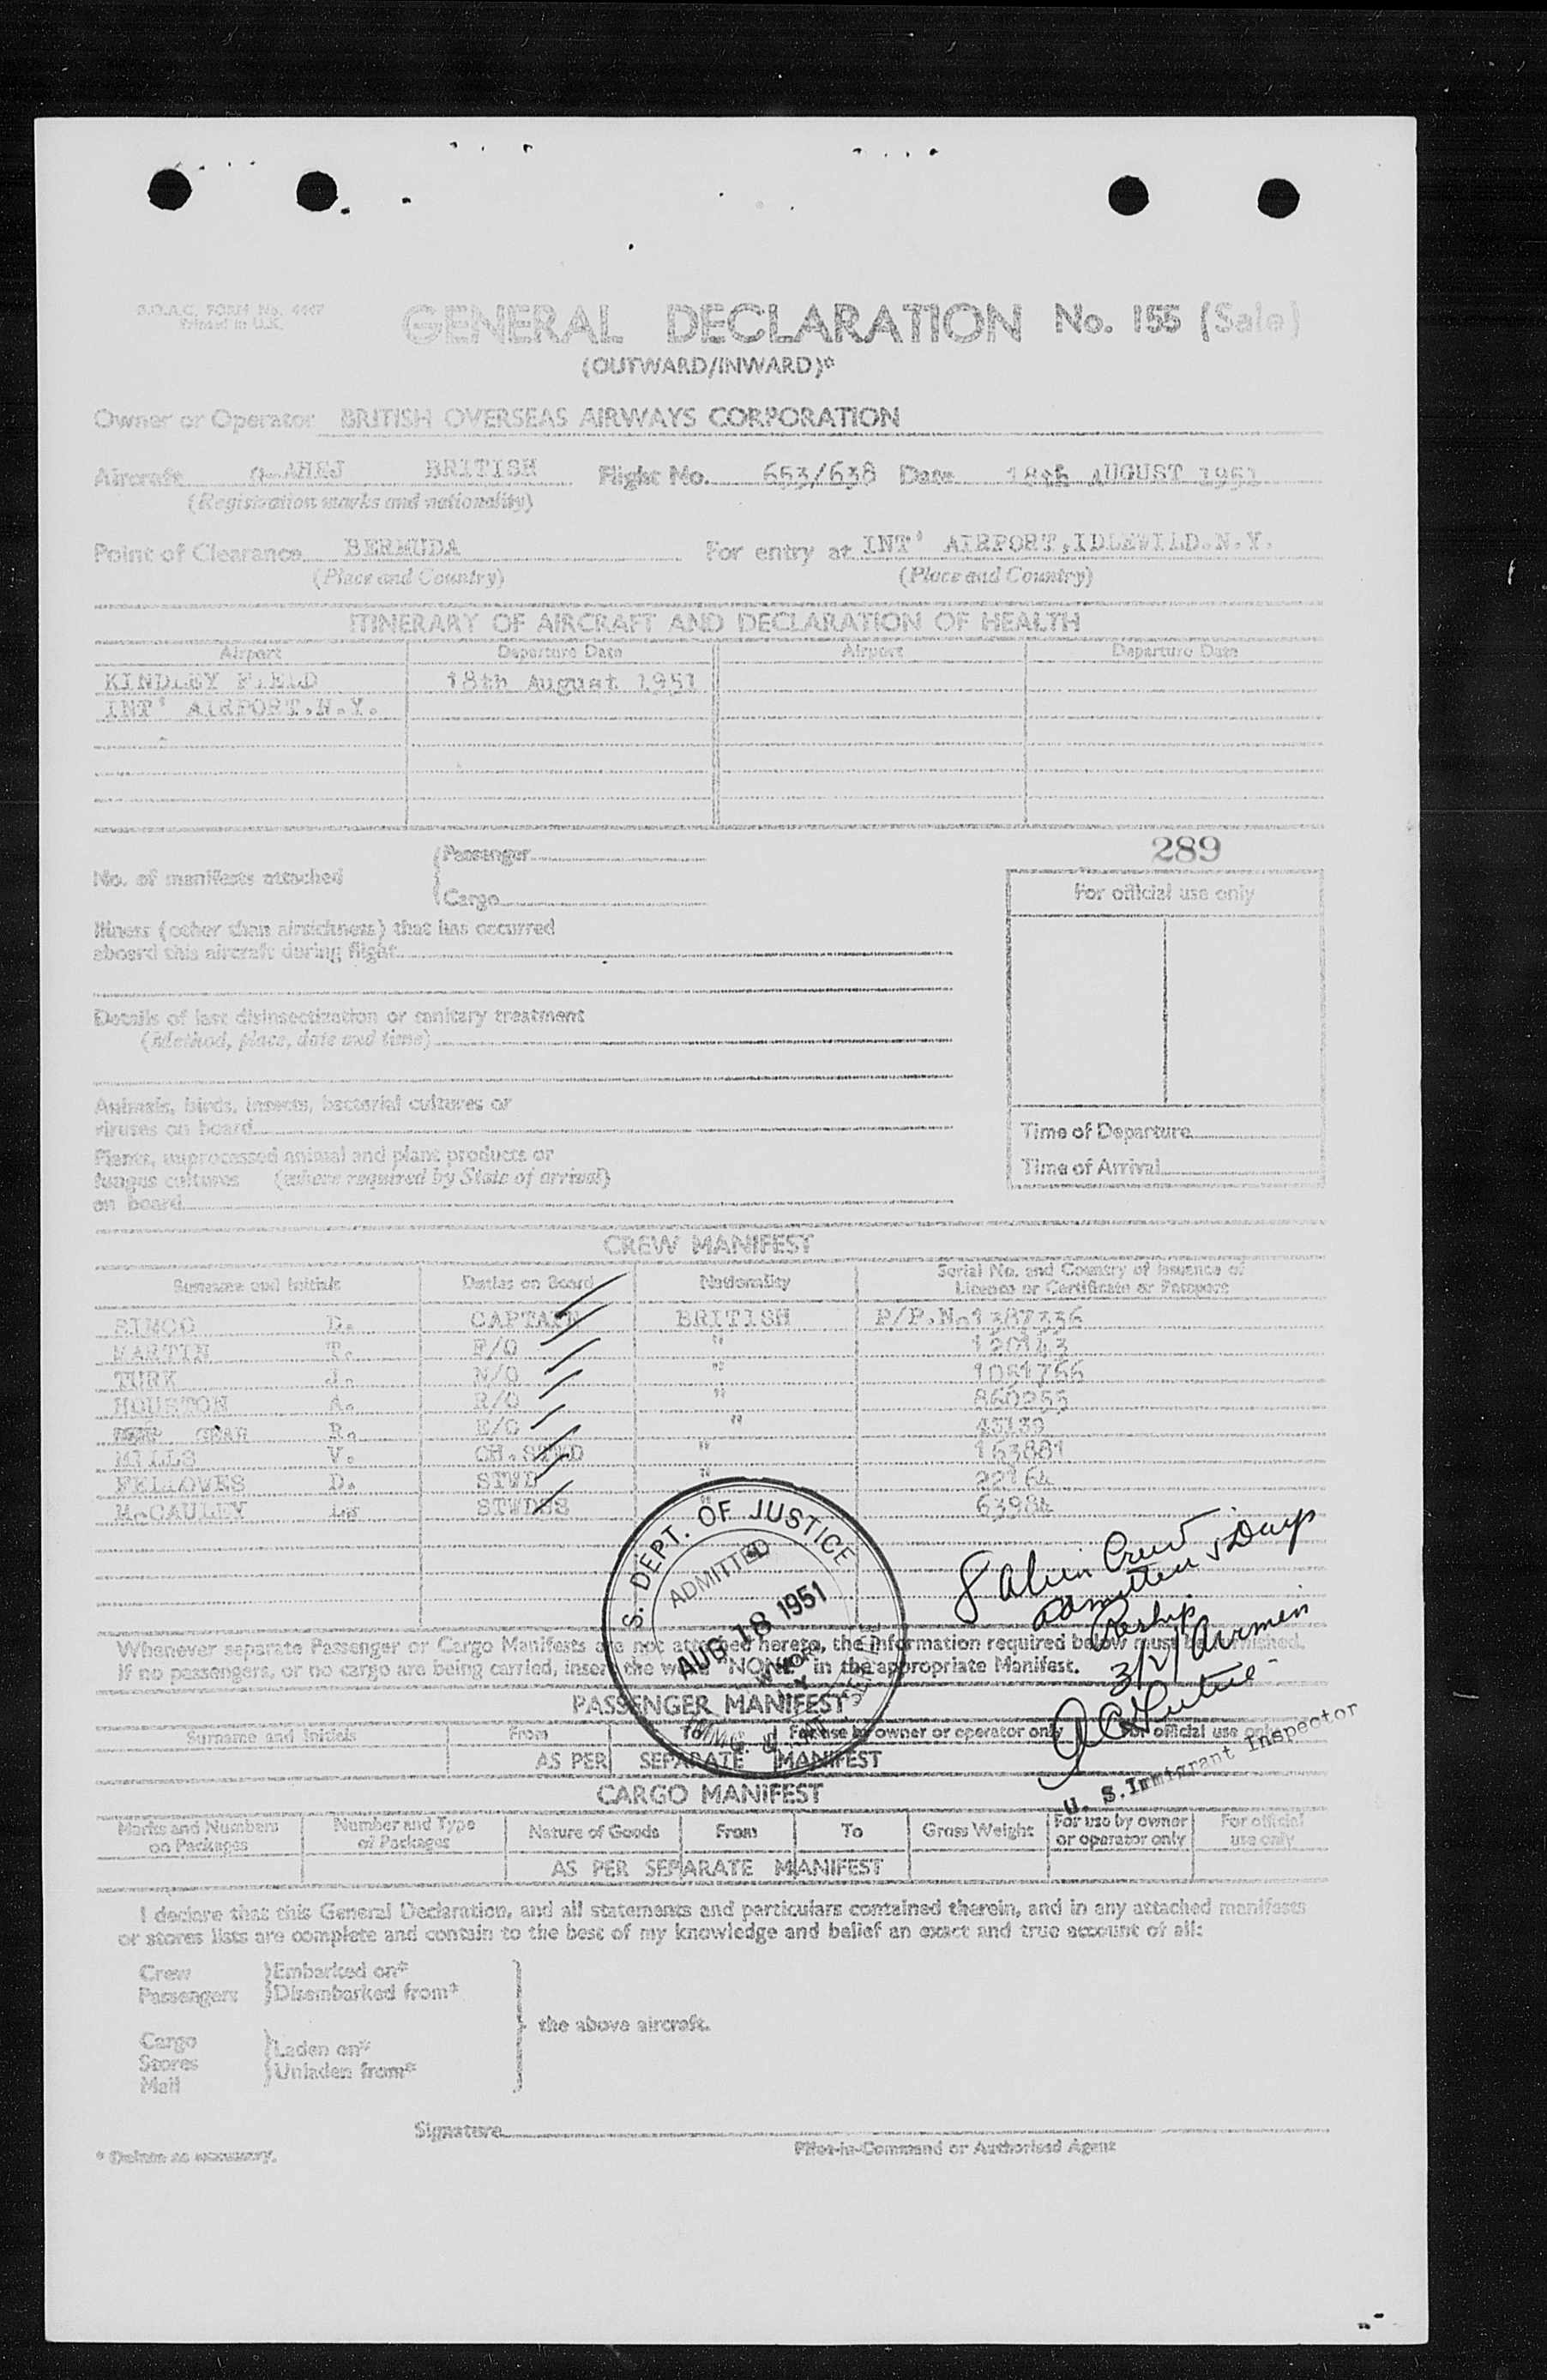 B.O.A.C. FORM No. 4447
Printed in U.K.
GENERAL DECLARATION No. 155 (Sale)
(OUTWARD/INWARD)*
Owner or Operator BRITISH OVERSEAS AIRWAYS CORPORATION
Aircraft G-AHEJ BRITISH Flight No. 653/638 Date 18th AUGUST 1951
(Registration marks and nationality)
Point of Clearance BERMUDA For entry at INT' AIRPORT,IDLEWILD.N.Y.
(Place and Country) (Place and Country)
ITINERARY OF AIRCRAFT AND DECLARATION OF HEALTH
Airport Departure Date Airport Departure Date
KINDLEY FIELD 18th August 1951
INT' AIRPORT.N.Y.
289
No. of manifests attached (Passenger
(Cargo
For official use only
Illness (other than airsickness) that has occurred
aboard this aircraft during flight
Details of last disinsectization or sanitary treatment
(Method, place, date and time)
Animals, birds, insects, bacterial cultures or
viruses on board
Time of Departure
Plants, unprocessed animal and plant products or
fungus cultures (where required by State of arrival)
on board
Time of Arrival
CREW MANIFEST
Surname and Initials Duties on Board Nationality Serial No. and Country of Issuance of
Licence or Certificate or Passport
D. CAPTAIN BRITISH P/P.No1387336
MARTIN T. F/O " 120143
TURK J. N/O " 1051766
HOUSTON A. R/O " 860255
GEAR R. E/O " 43139
MILLS V. CH.STWD " 163881
FELLOWES D. STWD " 22164
McCAULEY STWDSS " 63984
S. DEPT. OF JUSTICE
ADMITTED
AUG 18 1951
8 alien Crew
admitted
3/2/
Whenever separate Passenger or Cargo Manifests are not attached hereto, the information required below must be furnished.
If no passengers, or no cargo are being carried, insert the word "NONE" in the appropriate Manifest.
PASSENGER MANIFEST
Surname and Initials From To For use by owner or operator only For official use only
AS PER SEPARATE MANIFEST
U. S. Immigrant Inspector
CARGO MANIFEST
Marks and Numbers on Packages Number and Type of Packages Nature of Goods From To Gross Weight For use by owner or operator only For official use only
AS PER SEPARATE MANIFEST
I declare that this General Declaration, and all statements and particulars contained therein, and in any attached manifests
or stores lists are complete and contain to the best of my knowledge and belief an exact and true account of all:
Crew }Embarked on*
Passengers }Disembarked from*
the above aircraft.
Cargo }Laden on*
Stores }Unladen from*
Mail
Signature
Pilot-in-Command or Authorised Agent
* Delete as necessary.